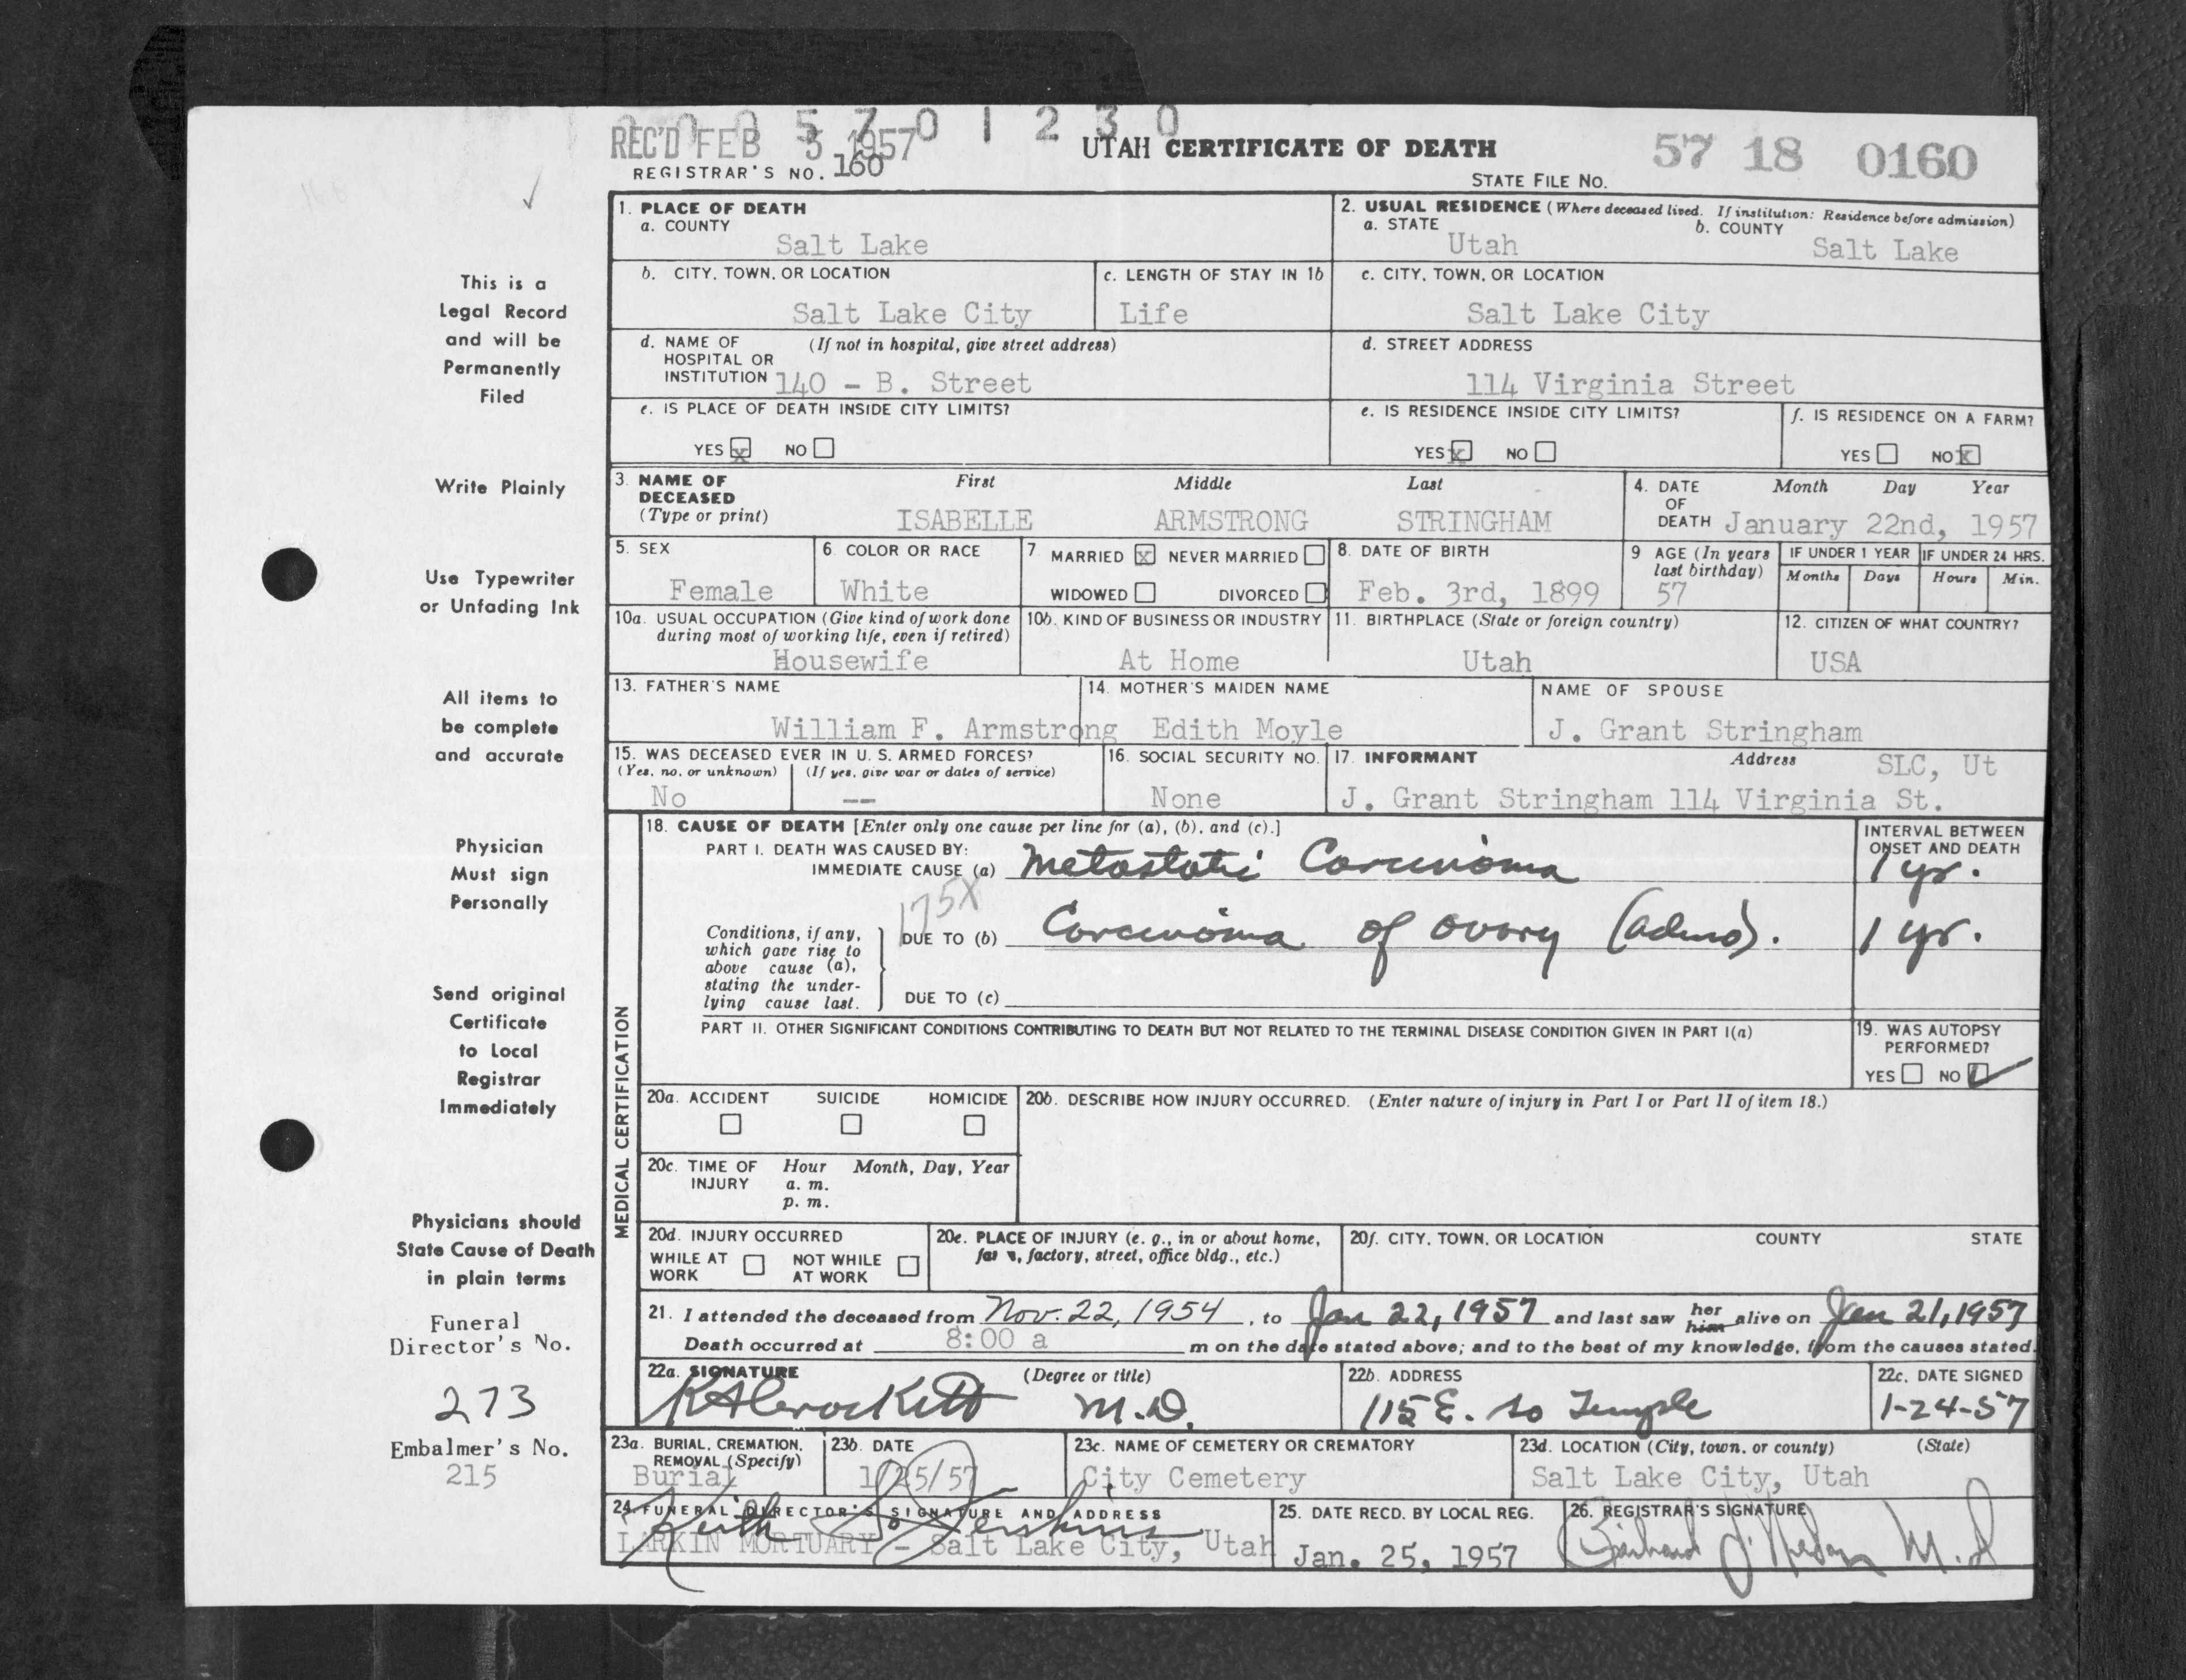 0 0 5 7 0 1 2 3 0
REC'D FEB 5 1957
UTAH CERTIFICATE OF DEATH
57 18 0160
REGISTRAR'S NO. 160
STATE FILE NO.
This is a
Legal Record
and will be
Permanently
Filed
Write Plainly
Use Typewriter
or Unfading Ink
All items to
be complete
and accurate
Physician
Must sign
Personally
Send original
Certificate
to Local
Registrar
Immediately
Physicians should
State Cause of Death
in plain terms
Funeral
Director's No.
273
Embalmer's No.
215
1. PLACE OF DEATH
a. COUNTY
Salt Lake
2. USUAL RESIDENCE (Where deceased lived. If institution: Residence before admission)
a. STATE b. COUNTY
Utah Salt Lake
b. CITY, TOWN, OR LOCATION
Salt Lake City
c. LENGTH OF STAY IN 1b
Life
c. CITY, TOWN, OR LOCATION
Salt Lake City
d. NAME OF (If not in hospital, give street address)
HOSPITAL OR
INSTITUTION 140 - B. Street
d. STREET ADDRESS
114 Virginia Street
e. IS PLACE OF DEATH INSIDE CITY LIMITS?
YES X NO
e. IS RESIDENCE INSIDE CITY LIMITS?
YES X NO
f. IS RESIDENCE ON A FARM?
YES NO X
3. NAME OF First Middle Last
DECEASED
(Type or print) ISABELLE ARMSTRONG STRINGHAM
4. DATE Month Day Year
OF
DEATH January 22nd, 1957
5. SEX
Female
6. COLOR OR RACE
White
7. MARRIED X NEVER MARRIED
WIDOWED DIVORCED
8. DATE OF BIRTH
Feb. 3rd, 1899
9 AGE (In years
last birthday)
57
IF UNDER 1 YEAR IF UNDER 24 HRS.
Months Days Hours Min.
10a. USUAL OCCUPATION (Give kind of work done
during most of working life, even if retired)
Housewife
10b. KIND OF BUSINESS OR INDUSTRY
At Home
11. BIRTHPLACE (State or foreign country)
Utah
12. CITIZEN OF WHAT COUNTRY?
USA
13. FATHER'S NAME
William F. Armstrong
14. MOTHER'S MAIDEN NAME
Edith Moyle
NAME OF SPOUSE
J. Grant Stringham
15. WAS DECEASED EVER IN U. S. ARMED FORCES?
(Yes, no, or unknown) (If yes, give war or dates of service)
No --
16. SOCIAL SECURITY NO.
None
17. INFORMANT Address SLC, Ut
J. Grant Stringham 114 Virginia St.
MEDICAL CERTIFICATION
18. CAUSE OF DEATH [Enter only one cause per line for (a), (b), and (c).]
PART I. DEATH WAS CAUSED BY:
IMMEDIATE CAUSE (a) Metastatic Carcinoma
INTERVAL BETWEEN
ONSET AND DEATH
1 yr.
175X
Conditions, if any,
which gave rise to
above cause (a),
stating the under-
lying cause last.
DUE TO (b) Carcinoma of ovary (adeno). 1 yr.
DUE TO (c)
PART II. OTHER SIGNIFICANT CONDITIONS CONTRIBUTING TO DEATH BUT NOT RELATED TO THE TERMINAL DISEASE CONDITION GIVEN IN PART I(a)
19. WAS AUTOPSY
PERFORMED?
YES NO ✓
20a. ACCIDENT SUICIDE HOMICIDE
20b. DESCRIBE HOW INJURY OCCURRED. (Enter nature of injury in Part I or Part II of item 18.)
20c. TIME OF Hour Month, Day, Year
INJURY a. m.
p. m.
20d. INJURY OCCURRED
WHILE AT NOT WHILE
WORK AT WORK
20e. PLACE OF INJURY (e. g., in or about home,
farm, factory, street, office bldg., etc.)
20f. CITY, TOWN, OR LOCATION COUNTY STATE
21. I attended the deceased from Nov. 22, 1954, to Jan 22, 1957 and last saw her him alive on Jan 21, 1957
Death occurred at 8:00 a m on the date stated above; and to the best of my knowledge, from the causes stated.
22a. SIGNATURE (Degree or title)
R A Crockett M.D.
22b. ADDRESS
115 E. So Temple
22c. DATE SIGNED
1-24-57
23a. BURIAL, CREMATION,
REMOVAL (Specify)
Burial
23b. DATE
1/25/57
23c. NAME OF CEMETERY OR CREMATORY
City Cemetery
23d. LOCATION (City, town, or county) (State)
Salt Lake City, Utah
24. FUNERAL DIRECTOR'S SIGNATURE AND ADDRESS
LARKIN MORTUARY - Salt Lake City, Utah
25. DATE RECD. BY LOCAL REG.
Jan. 25, 1957
26. REGISTRAR'S SIGNATURE
M.D